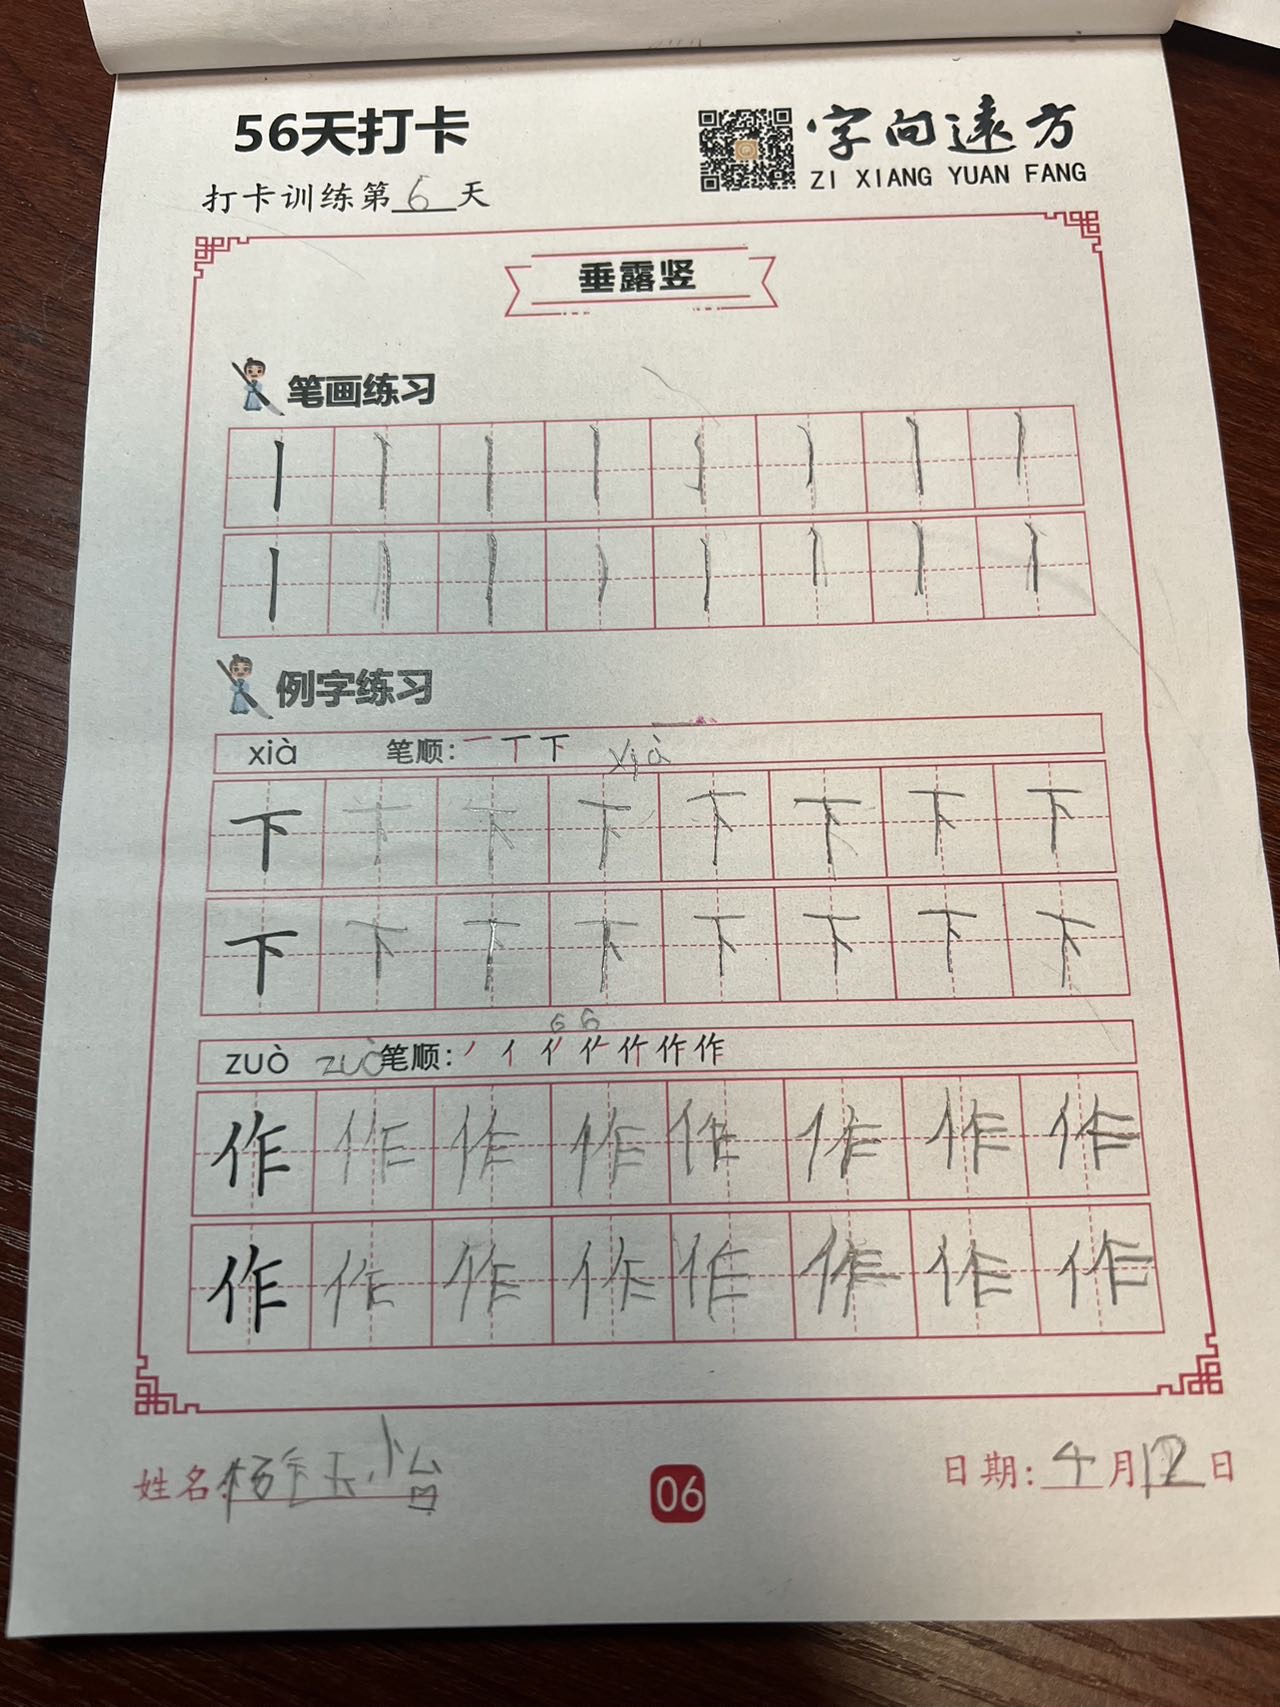 56天打卡
字向遠方
ZI XIANG YUAN FANG
打卡训练第6天
垂露竖
笔画练习
丨丨丨丨丨丨丨丨
丨丨丨丨丨丨丨丨
例字练习
xià 笔顺: 一 丅 下 xià
下下下下下下下下
下下下下下下下下
6 6
zuò zuò 笔顺: 作
作作作作作作作作
作作作作作作作作
姓名: 杨 怡
06
日期: 4月12日